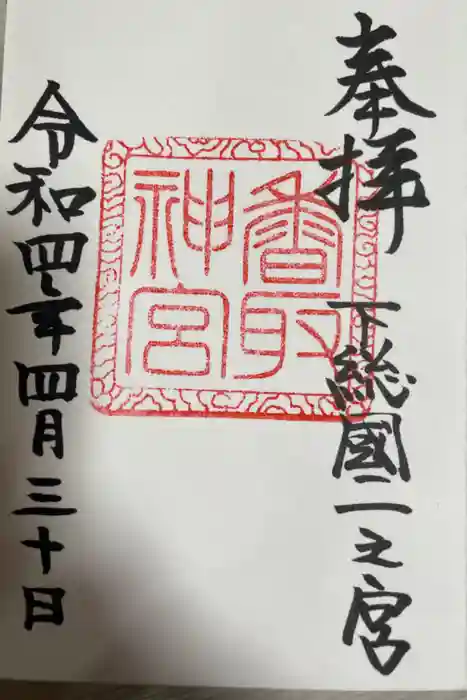 奉拝
下総國二之宮
香取
神宮
令和四年四月三十日